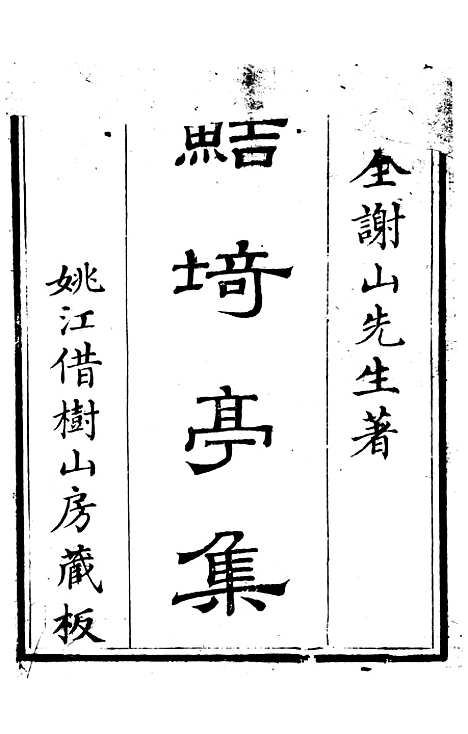 全謝山先生著
鮚埼亭集
姚江借樹山房藏板